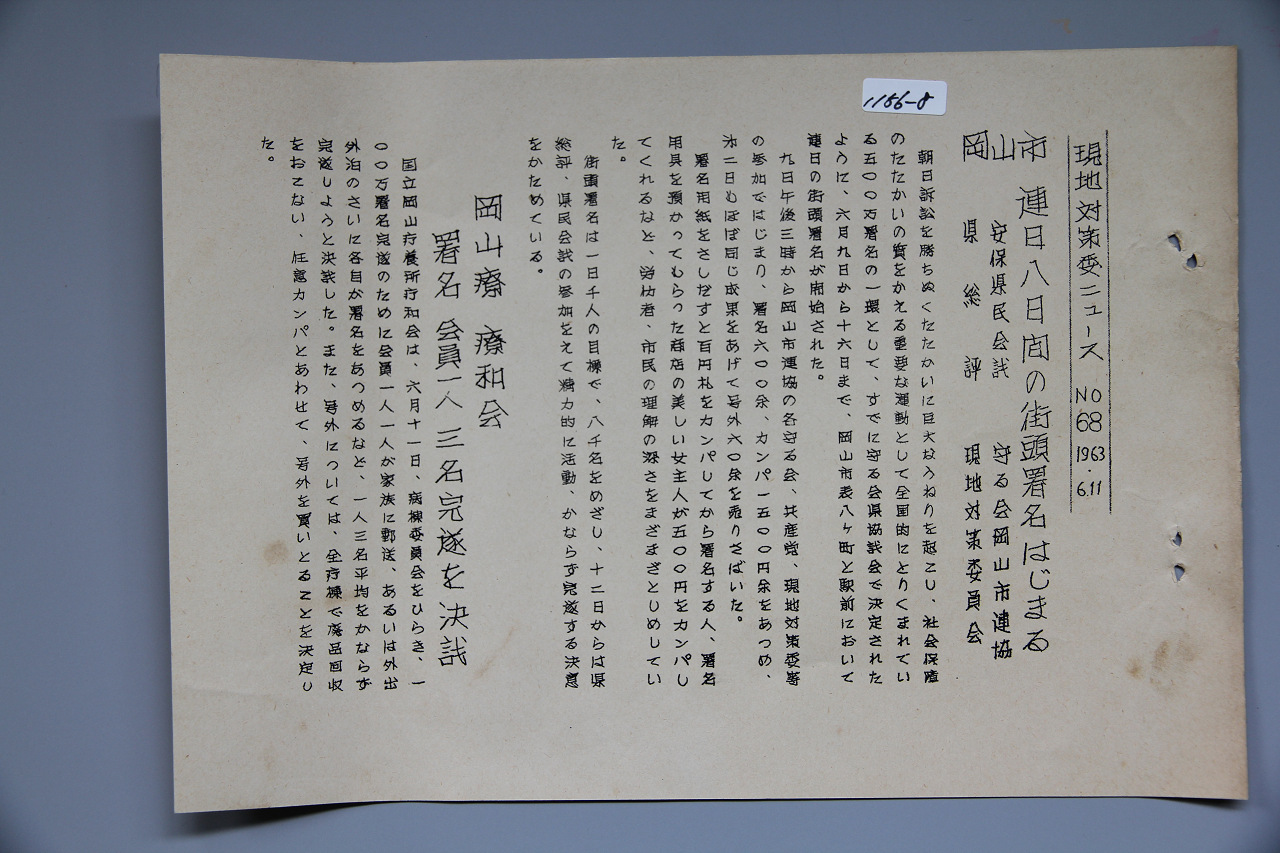 1156-8
現地対策委ニュース NO 68 1963・6.11
岡山市 連日八日間の街頭署名はじまる
安保県民会議 守る会岡山市連協
県総評 現地対策委員会
朝日訴訟を勝ちぬくたたかいに巨大なうねりを起こし、社会保障
のたたかいの質をかえる重要な運動として全国的にとりくまれてい
る五〇〇万署名の一環として、すでに守る会県協議会で決定された
ように、六月九日から十六日まで、岡山市表八ヶ町と駅前において
連日の街頭署名が開始された。
九日午後三時から岡山市連協の各守る会、共産党、現地対策委等
の参加ではじまり、署名六〇〇余、カンパ一五〇〇円余をあつめ、
二日もほぼ同じ成果をあげて号外六〇余を売りさばいた。
署名用紙をさしだすと百円札をカンパしてから署名する人、署名
用具を預かってもらった商店の美しい女主人が五〇〇円をカンパし
てくれるなど、労仂者、市民の理解の深さをまざまざとしめしてい
た。
街頭署名は一日千人の目標で、八千名をめざし、十二日からは県
総評、県民会議の参加をえて精力的に活動、かならず完遂する決意
をかためている。
岡山療 療和会
署名 会員一人 三名完遂を決議
国立岡山療養所療和会は、六月十一日、病棟委員会をひらき、一
〇〇万署名完遂のために会員一人一人が家族に郵送、あるいは外出
外泊のさいに各自が署名をあつめるなど、一人三名平均をかならず
完遂しようと決議した。また、号外については、全療棟で廃品回収
をおこない、任意カンパとあわせて、号外を買いとることを決定し
た。